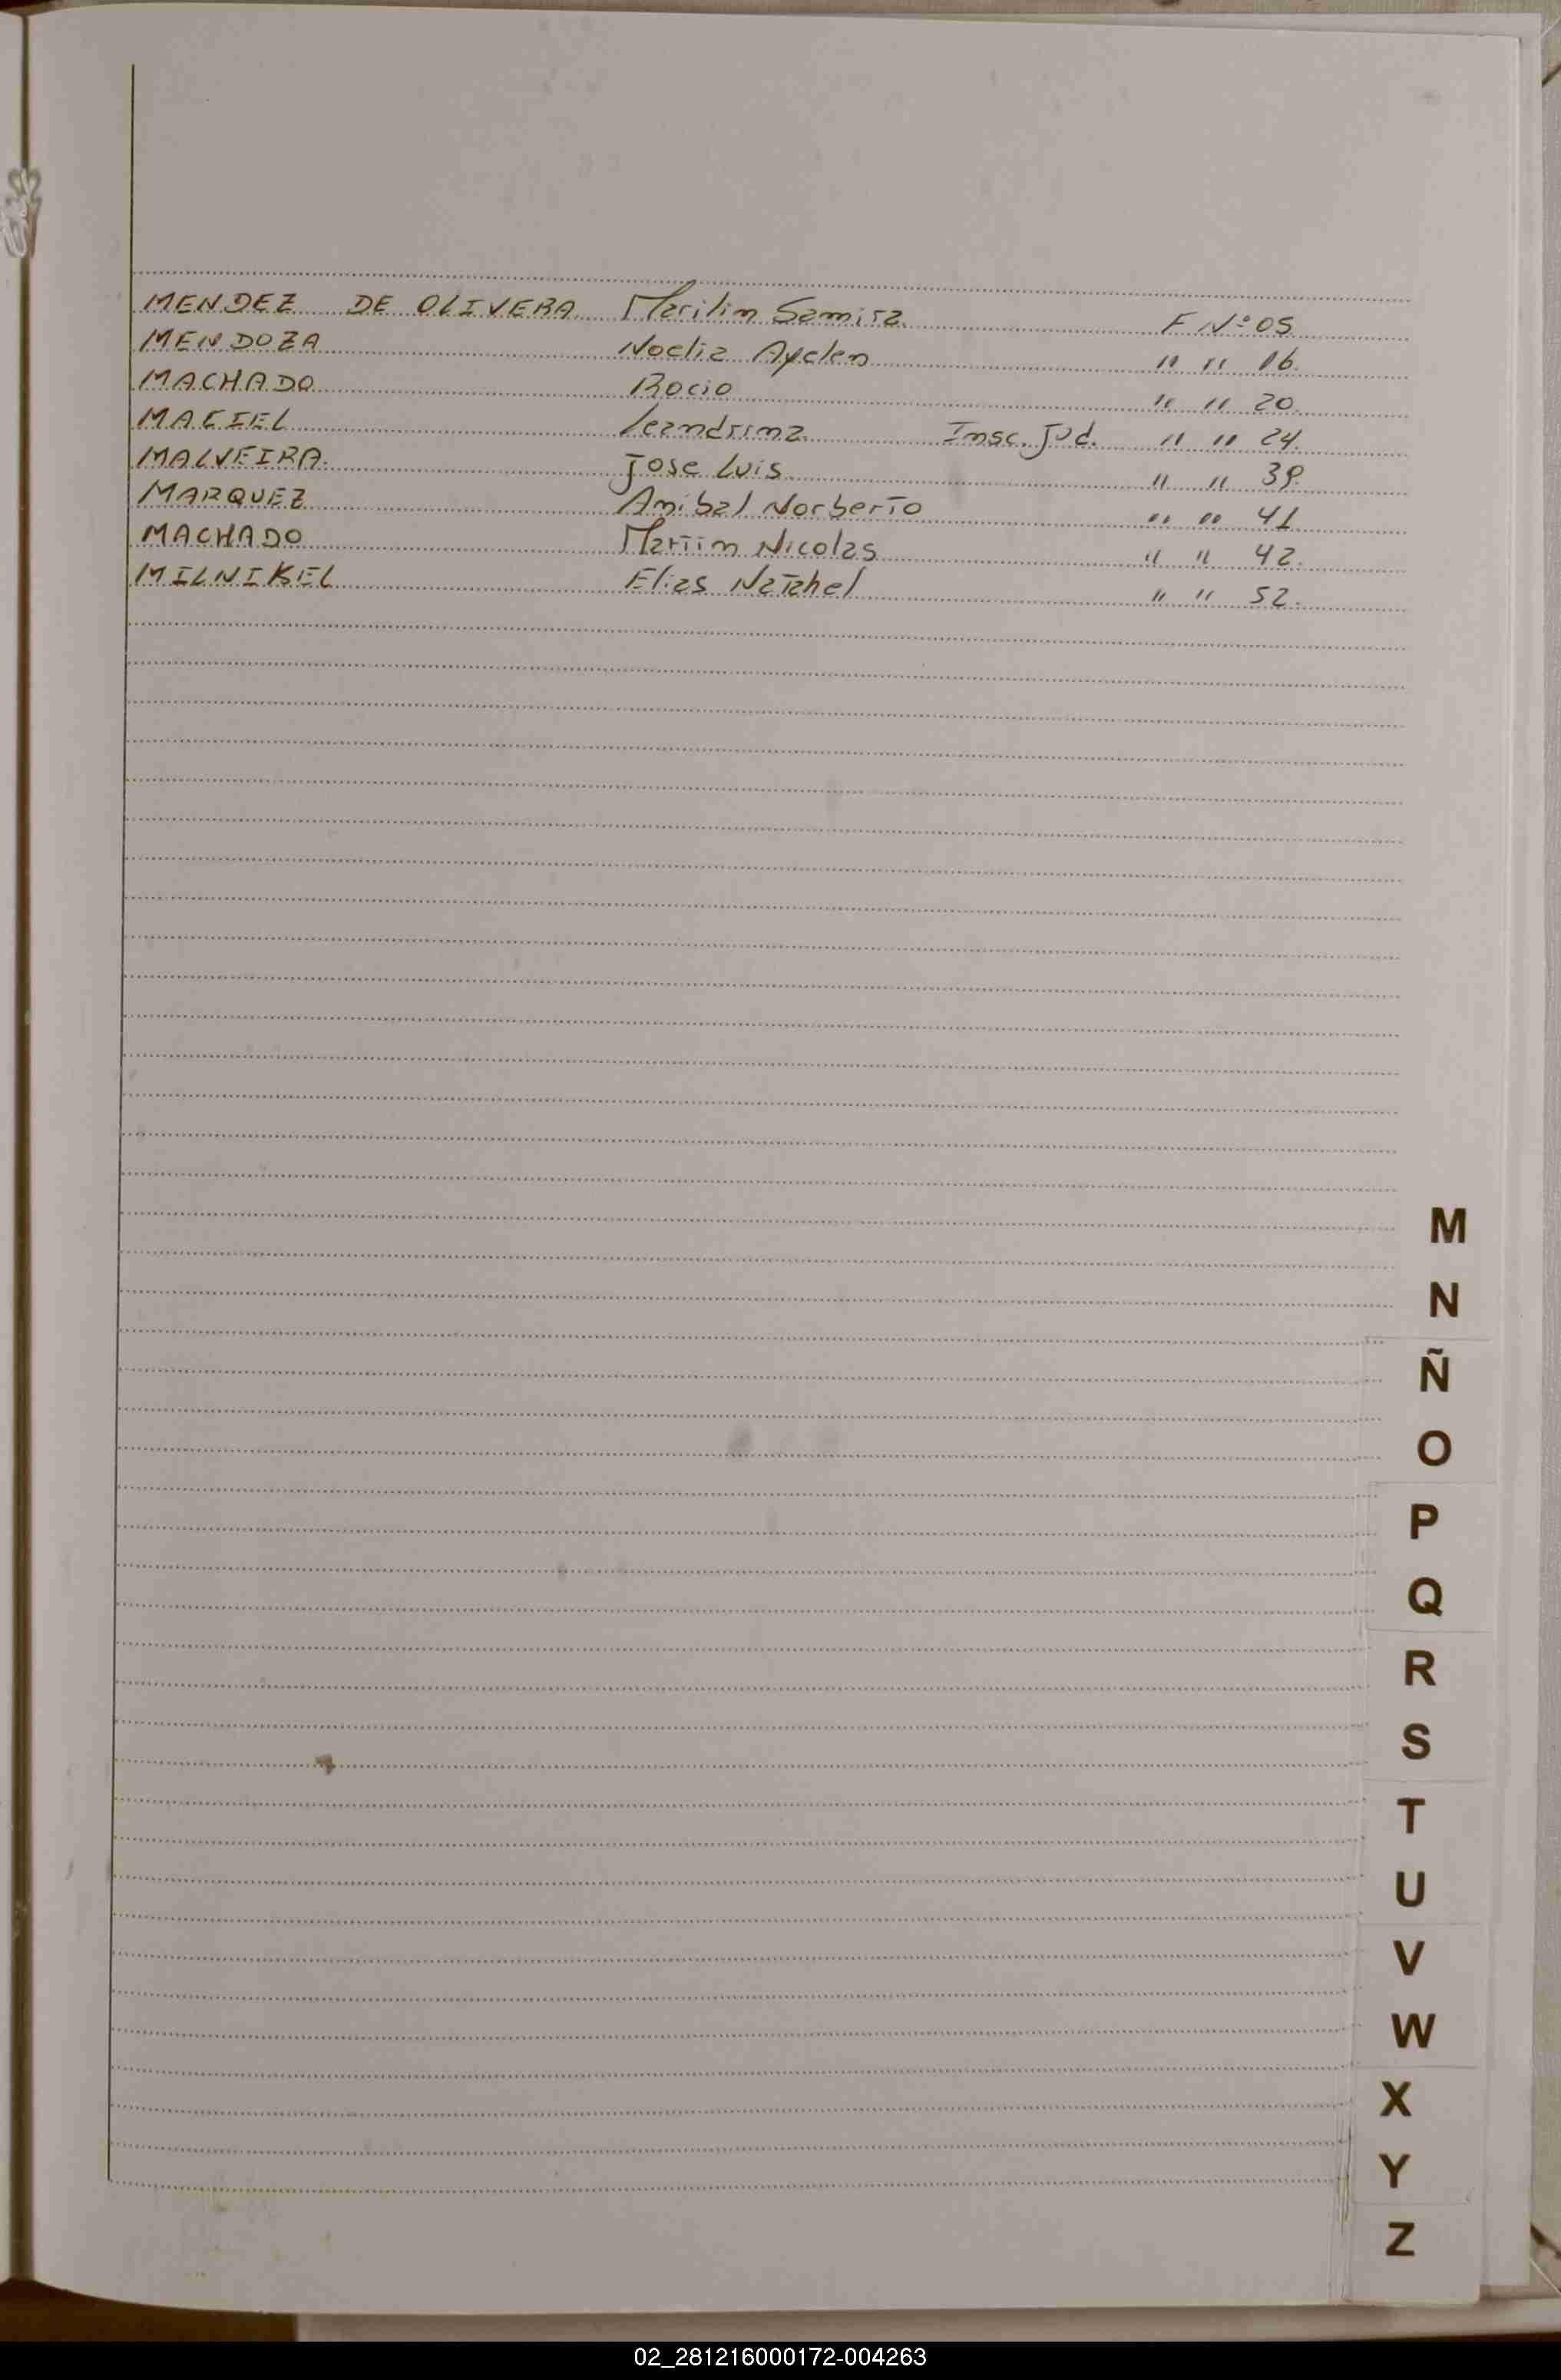 MENDEZ DE OLIVERA Marilin Samira F Nº 05
MENDOZA Noelia Ayelen " " 06
MACHADO Rocio " " 20
MACIEL Leandrina Insc. Jud. " " 24
MALVEIRA Jose Luis " " 39
MARQUEZ Anibal Norberto " " 41
MACHADO Martin Nicolas " " 42
MILNIKEL Elias Natahel " " 52
M
N
Ñ
O
P
Q
R
S
T
U
V
W
X
Y
Z
02_281216000172-004263